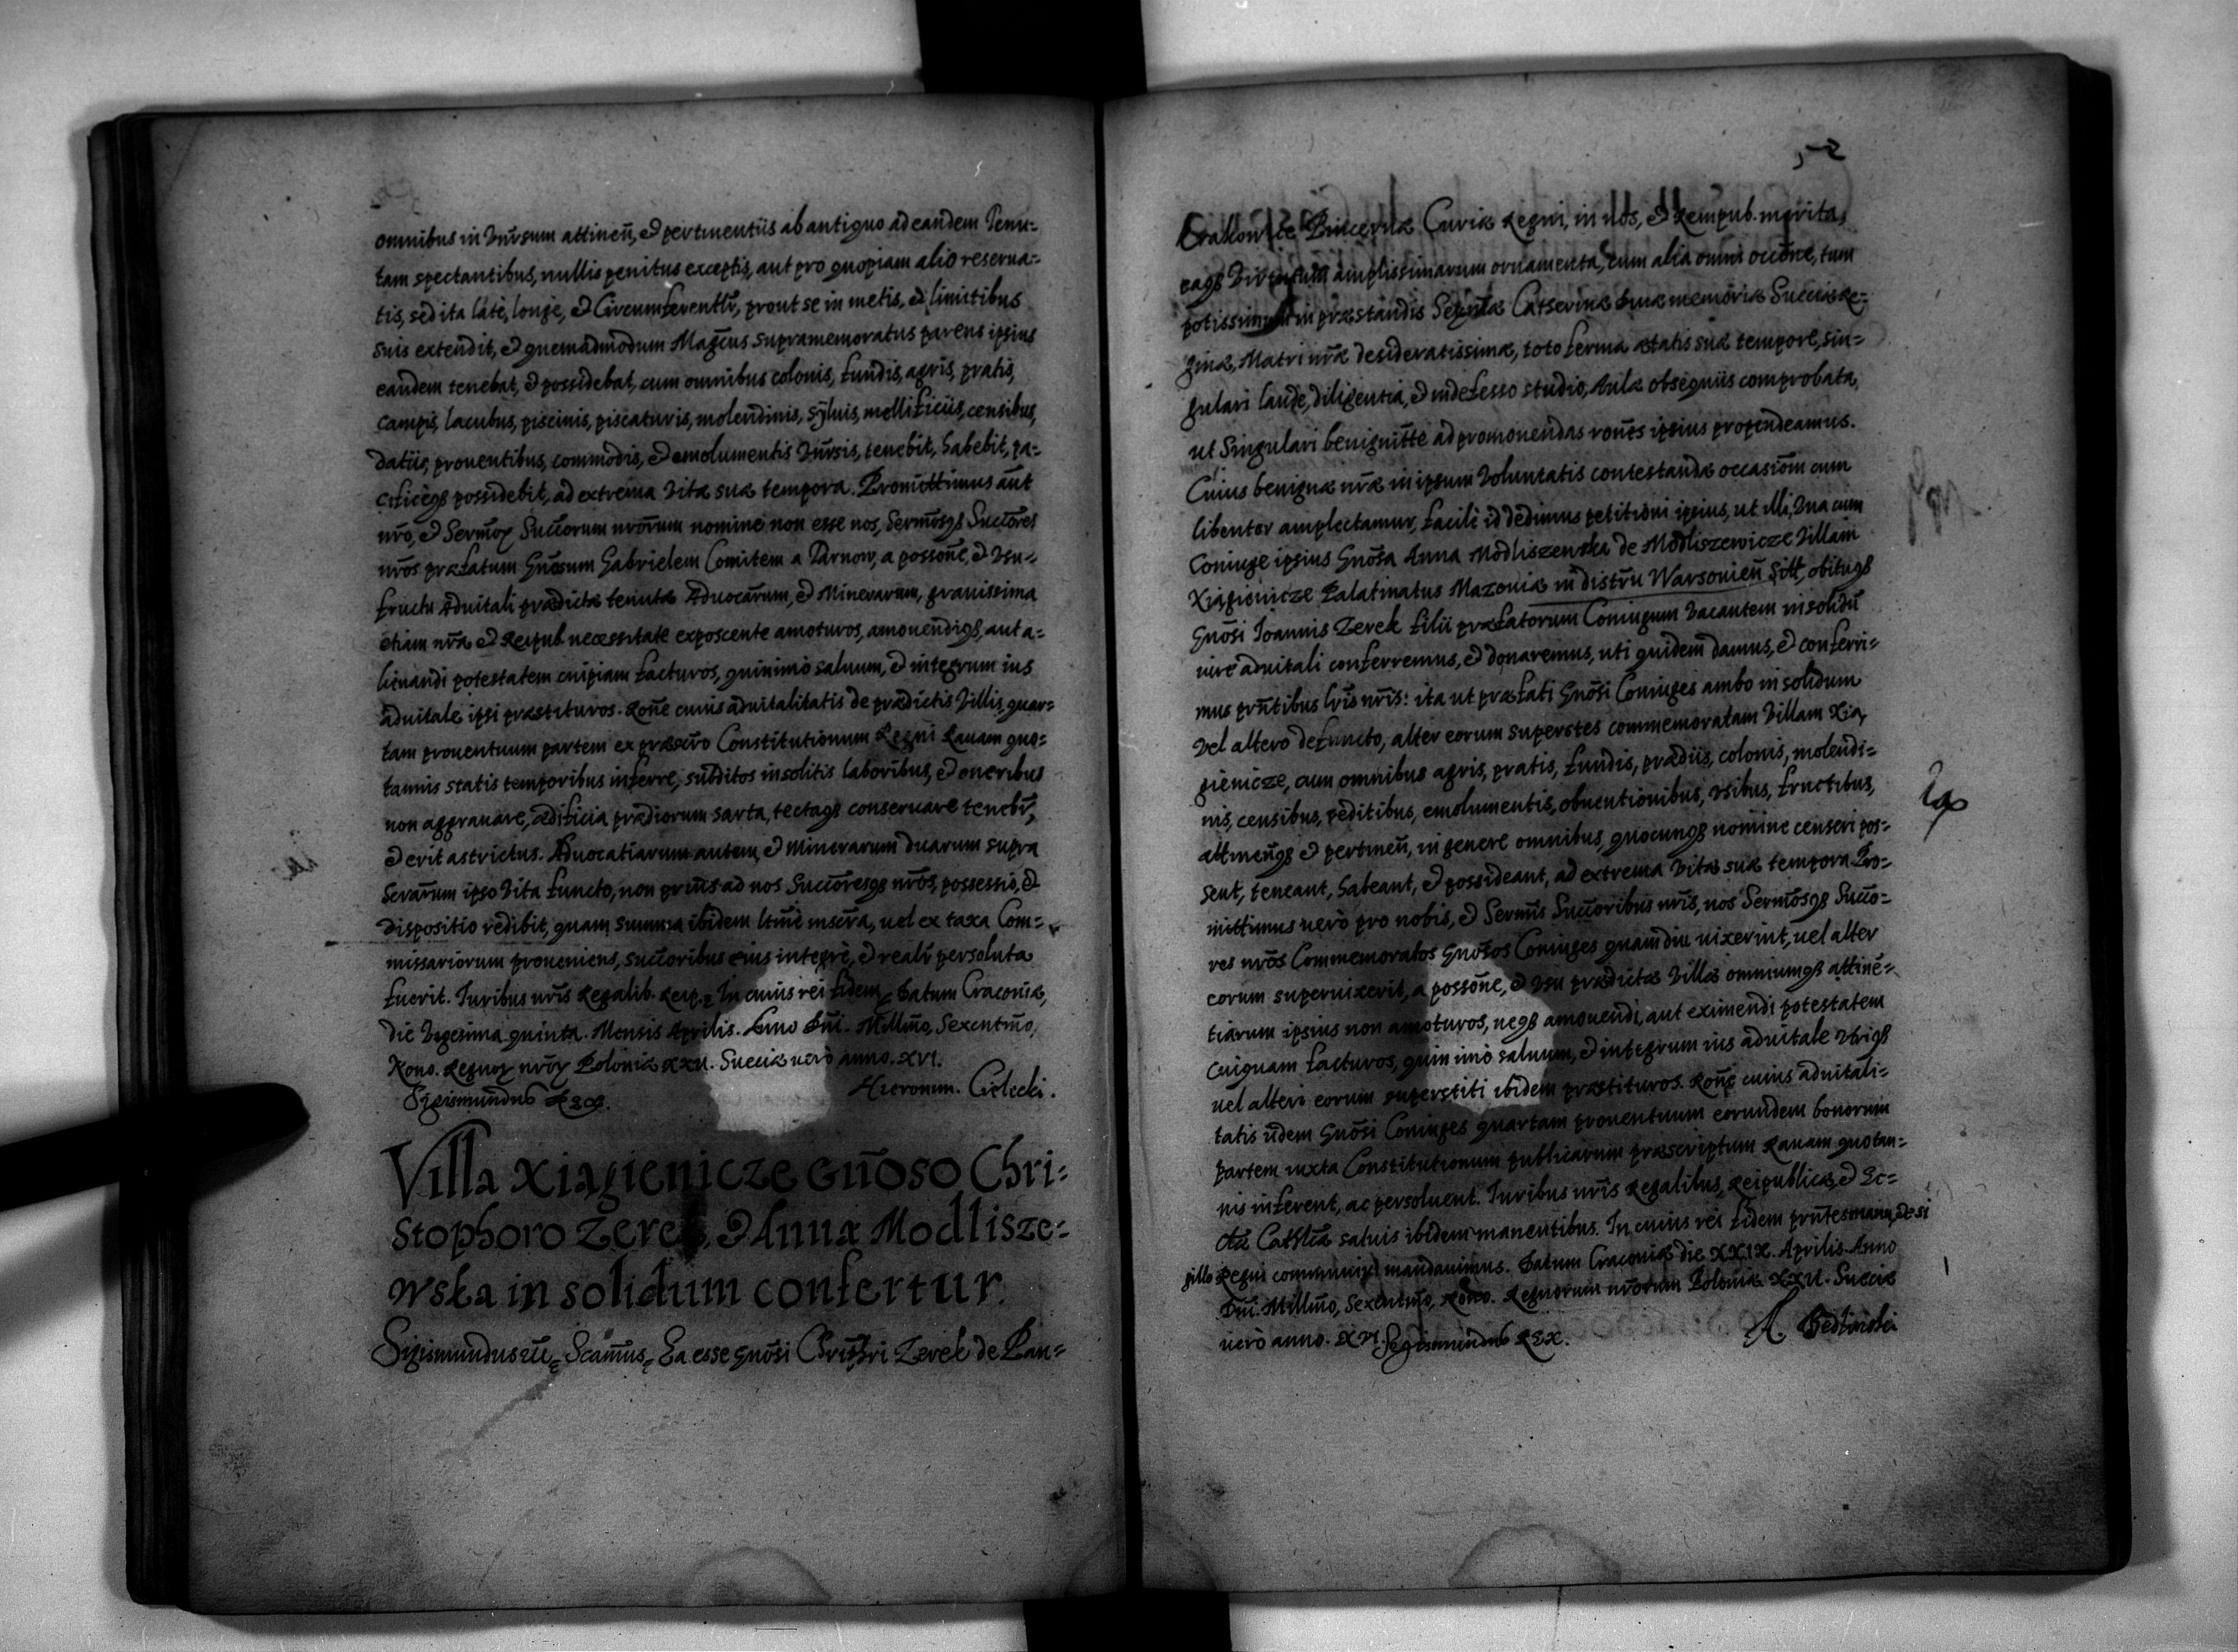 omnibus in Vnr̃sum attineñ, et pertinentiis ab antiquo ad eandem Tenu=
tam spectantibus, nullis penitus exceptis, aut pro quopiam alio reserua=
tis, sed ita latè, longè, et Circumferentlr̃, prout se in metis, et limitibus
suis extendit, et quemadmodum Magcus supramemoratus parens ipsius
eandem tenebat, et possidebat, cum omnibus colonis, fundis, agris, pratis,
campis, lacubus, piscinis, piscaturis, molendinis, syluis, mellificiis, censibus,
datiis, prouentibus, commodis, et emolumentis Vnr̃sis, tenebit, habebit, pa=
cificeq3 possidebit, ad extrema vitæ suæ tempora. Promittimus aũt
nrõ, et Sermoꝝ Succorum nrõrum nomine non esse nos, Sermosq3 Succores
nrõs præfatum Gnõsum Gabrielem Comitem a Tarnow, a possoñe, et Vsu=
fructu Aduitali prædictæ tenutæ Aduocãrum, et Minerarum, grauissima
etiam nrã et Reipub necessitate exposcente amoturos, amouendiq3, aut a=
lienandi potestatem cuipiam facturos, quinimo saluum, et integrum ius
aduitale ipsi præstituros. Roñe cuius aduitalitatis de prædictis Villis, quar=
tam prouentuum partem ex præscro Constitutionum Regni Rauam quo=
tannis statis temporibus inferre, subditos insolitis laboribus, et oneribus
non aggrauare, ædificia prædiorum sarta, tectaq3 conseruare tenebr̃,
et erit astrictus. Aduocatiarum autem, et Minerarum duarum supra
scrãrum ipso Vita functo, non priũs ad nos Succoresq3 nrõs, possessio, et
dispositio redibit, quam summa ibidem ltm̃e inscrã, uel ex taxa Com=
missariorum proueniens, succoribus eius integrè, et realr̃ persoluta
fuerit. Iuribus nrĩs Regalib. Reip. In cuius rei fidem Datum Cracouiæ,
die Vigesima quinta. Mensis Aprilis. Anno Dni. Millmo, Sexentmo,
Nono. Regnoꝝ nrõꝝ Poloniæ XXII. Sueciæ uerò anno. XVI.
Sigismundus Rex. Hieronim. Cielecki.
Villa Xiagienicze Gñoso Chri=
stophoro Zerek, et Annæ Modlisze=
wska in solidum confertur.
Sigismundus III Scamus, Ea esse gnõsi Chrisphri Zerek de Pan=
52
Crakowice Pincernæ Curiæ Regni, in nos, et Rempub. merita,
eaq3 Virtutum amplissimarum ornamenta, cum alia omni occõne, tum
potissimum in præstandis Serñæ Catherinæ Diuæ memoriæ Sueciæ Re=
ginæ, Matri nrã desideratissimæ, toto ferme ætatis suæ tempore, sin=
gulari laude, diligentia, et indefesso studio, Aulæ obsequiis comprobata,
ut Singulari benignitte ad promouendas roñes ipsius propendeamus.
Cuius benignæ nrã in ipsum Voluntatis contestandæ occasiom cum
libenter amplectamur, facilè id dedimus petitioni ipsius, ut illi, Vna cum
Coniuge ipsius Gnõsa Anna Modliszenska de Modliszewicze Villam
Xiagienicze Palatinatus Mazouiæ in distrũ Warsouien Sitt, obituq3
Gnõsi Ioannis Zerek filii præfatorum Coniugum Vacantem in solidũ
iure aduitali conferremus, et donaremus, uti quidem damus, et conferri=
mus prñtibus lrĩs nrĩs: ita ut præfati Gnõsi Coniuges ambo in solidum
Vel altero defuncto, alter eorum superstes commemoratam Villam Xia
gienicze, cum omnibus agris, pratis, fundis, prædiis, colonis, molendi=
nis, censibus, reditibus, emolumentis, obuentionibus, vsibus, fructibus,
attineñq3 et pertineñ, in genere omnibus, quocunq3 nomine censeri pos=
sent, teneant, habeant, et possideant, ad extrema Vitæ suæ tempora Pro=
mittimus uerò pro nobis, et Sermis Succoribus nrĩs, nos Sermosq3 Succo=
res nrõs Commemoratos Gnõsos Coniuges quamdiu uixerint, uel alter
eorum superuixerit, a possoñe, et Vsu prædictæ Villæ omniumq3 attinẽ=
tiarum ipsius non amoturos, neq3 amouendi, aut eximendi potestatem
cuiquam facturos, quin imò saluum, et integrum ius aduitale Vtriq3
uel alteri eorum superstiti ibidem præstituros. Roñe cuius aduitali=
tatis ijdem Gnõsi Coniuges quartam prouentuum eorundem bonorum
partem iuxta Constitutionum publicarum præscriptum Rauam quotan=
nis inferent, ac persoluent. Iuribus nrĩs Regalibus, Reipublicæ, et Ec=
clæ Cathlcæ saluis ibidem manentibus. In cuius rei fidem prñtes manu, et si
gillo Regni communiri mandauimus. Datum Cracouiæ die XXIX. Aprilis Anno
Dni. Millmo, Sexentmo, Nono. Regnorum nrõrum Poloniæ XXII. Sueciæ
uerò anno. XVI. Sigismundus Rex.